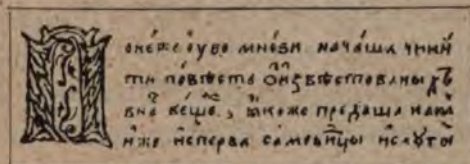 Понеже оубо мнози начаша чини
ти повѣсть ѡизвѣстнованы хъ
вна веще, ꙗкоже предаша нама
иже исперва самовицы ислугы